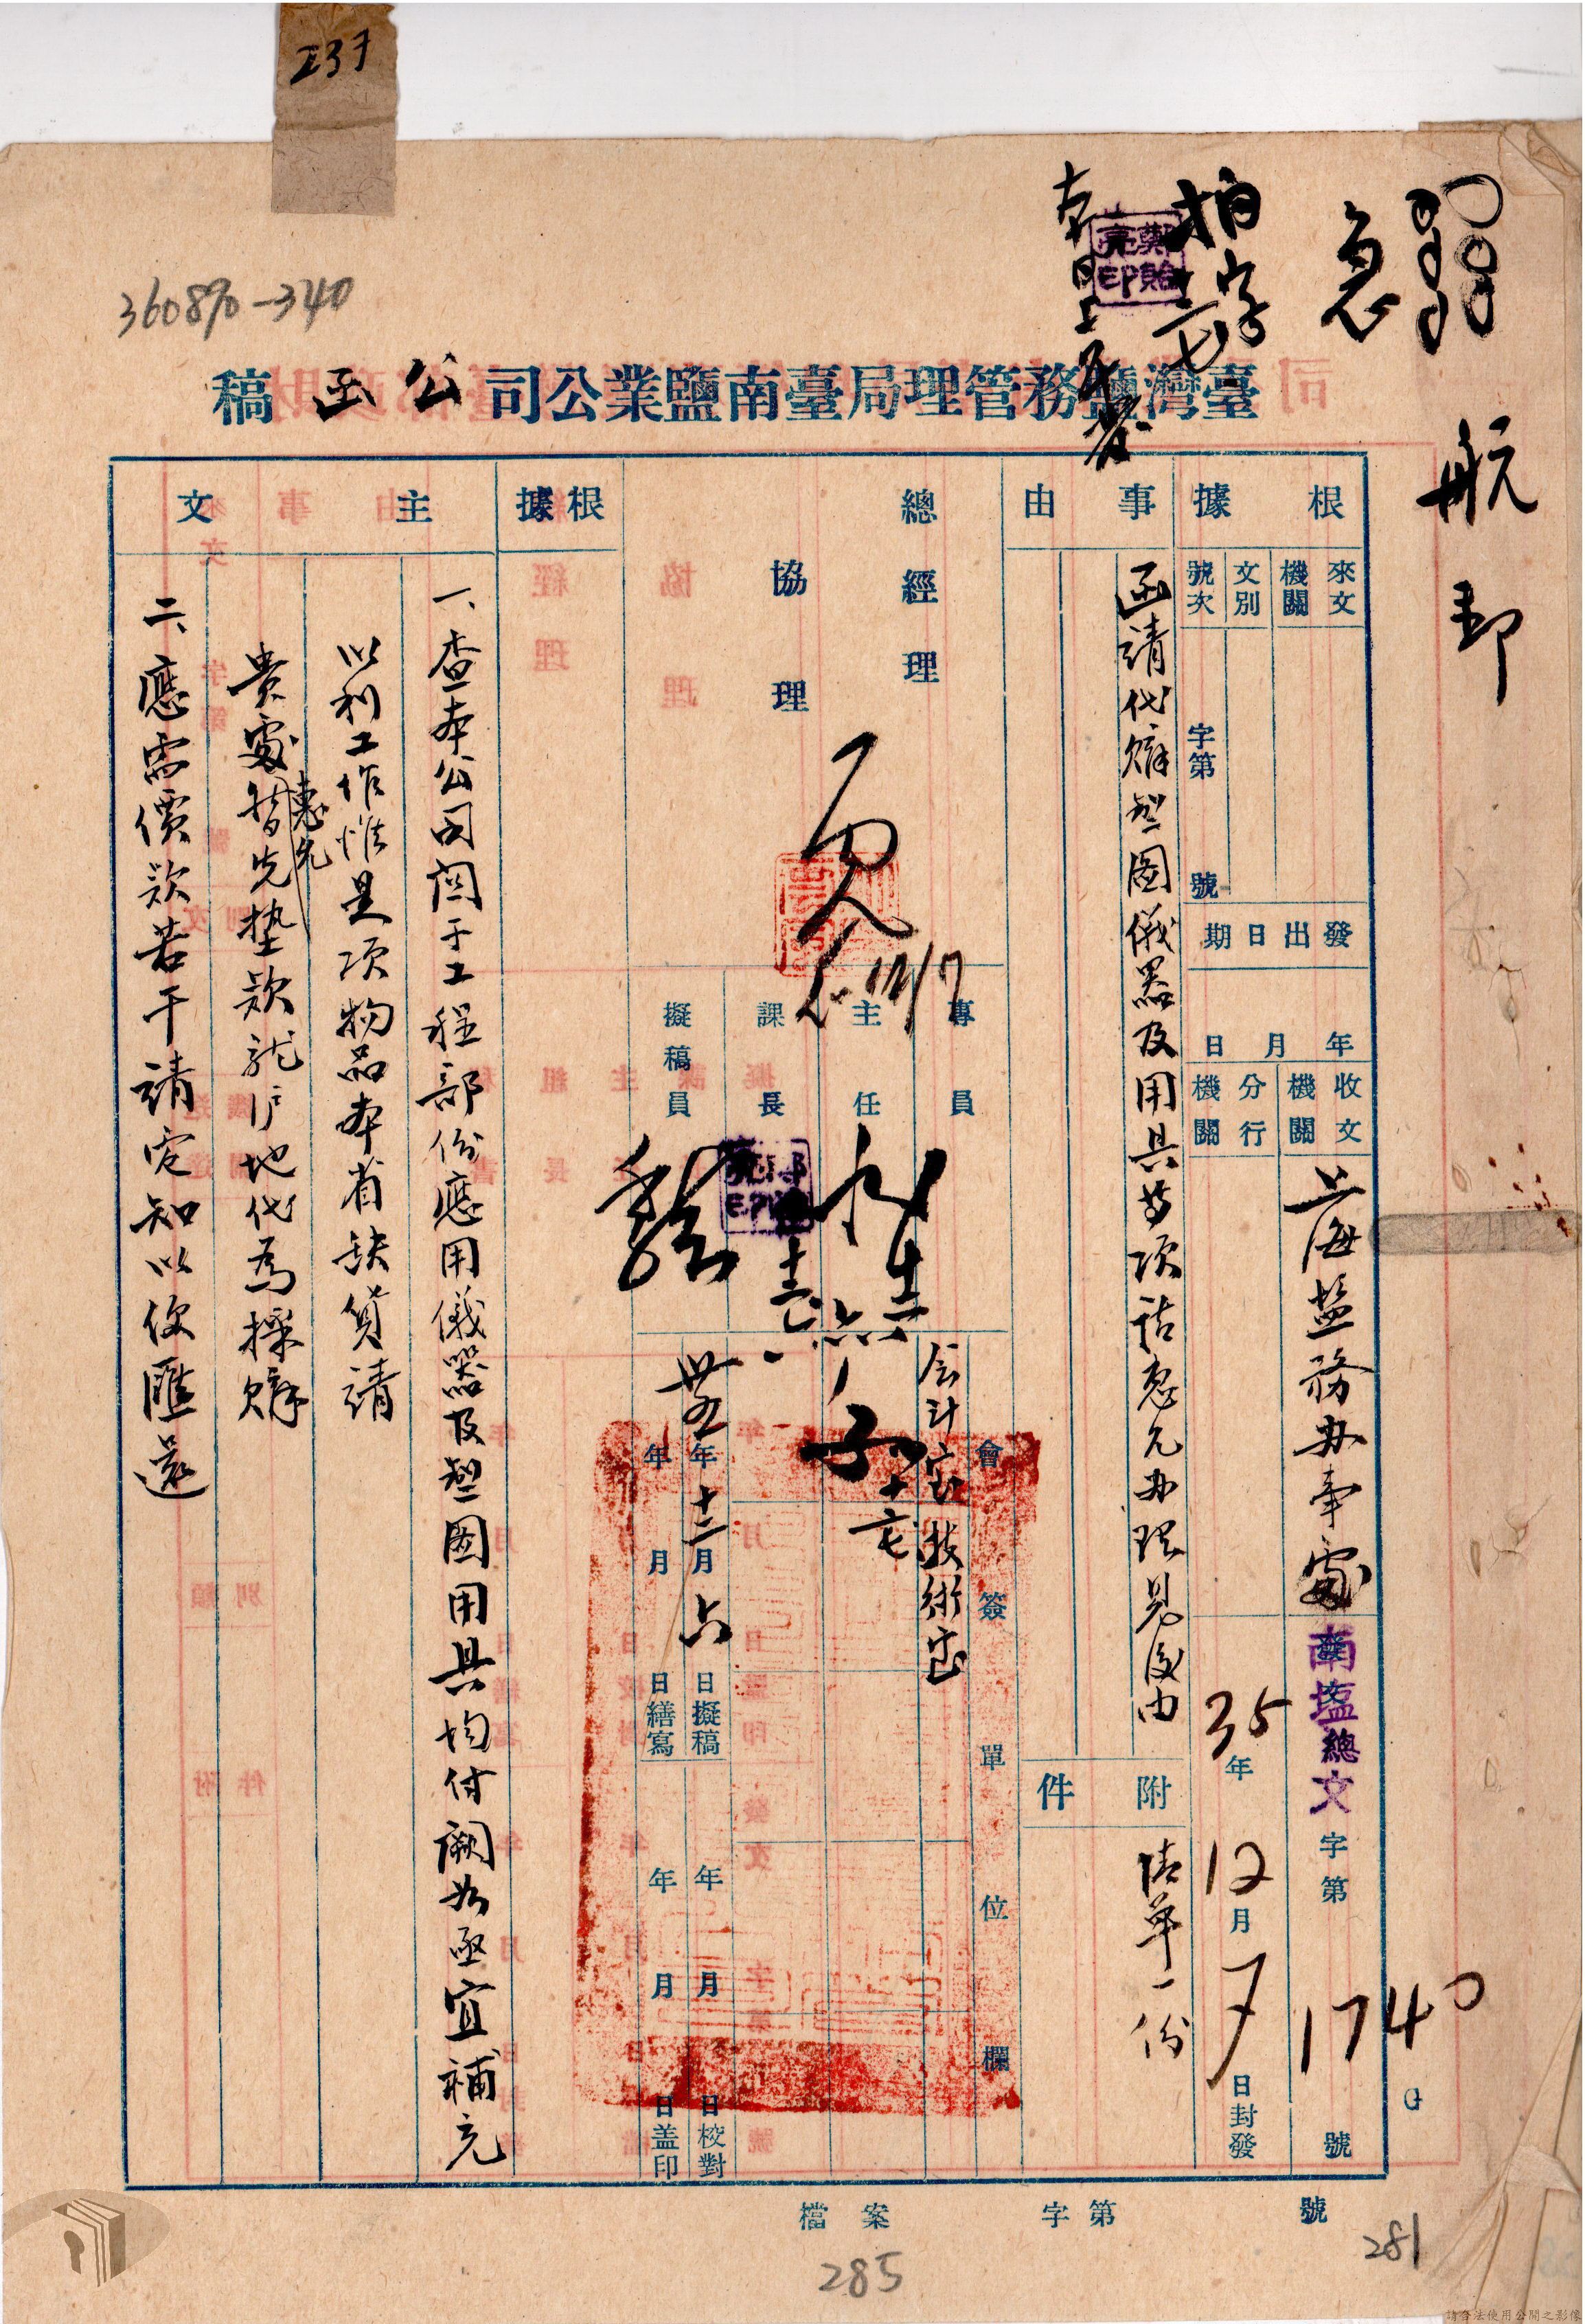 237
360890-340
急
航郵
臺灣鹽務管理局臺南鹽業公司公函稿
根據
來文機關
文別
號次
字第
號
發出日期
年月日
收文機關
上海盐務办事處
分行機關
南塩總文字第1740號
35年12月7日封發
事由
函請代購製圖儀器及用具等項請惠允办理見復由
附件
清單一份
總經理
協理
12/7
專員
主任
課長
擬稿員
會簽單位欄
会计室
技術室
卅五年十二月六日擬稿
年月日繕寫
年月日校對
年月日盖印
根據
主文
一、查本公司関于工程部份應用儀器及製圖用具均付闕如亟宜補充
以利工作惟是項物品本省缺貨請
貴處暫先墊款就沪地代為採購
惠允
二、應需價款若干請定知以便匯還
檔案
字第
號
285
281
請合法使用公開之影像